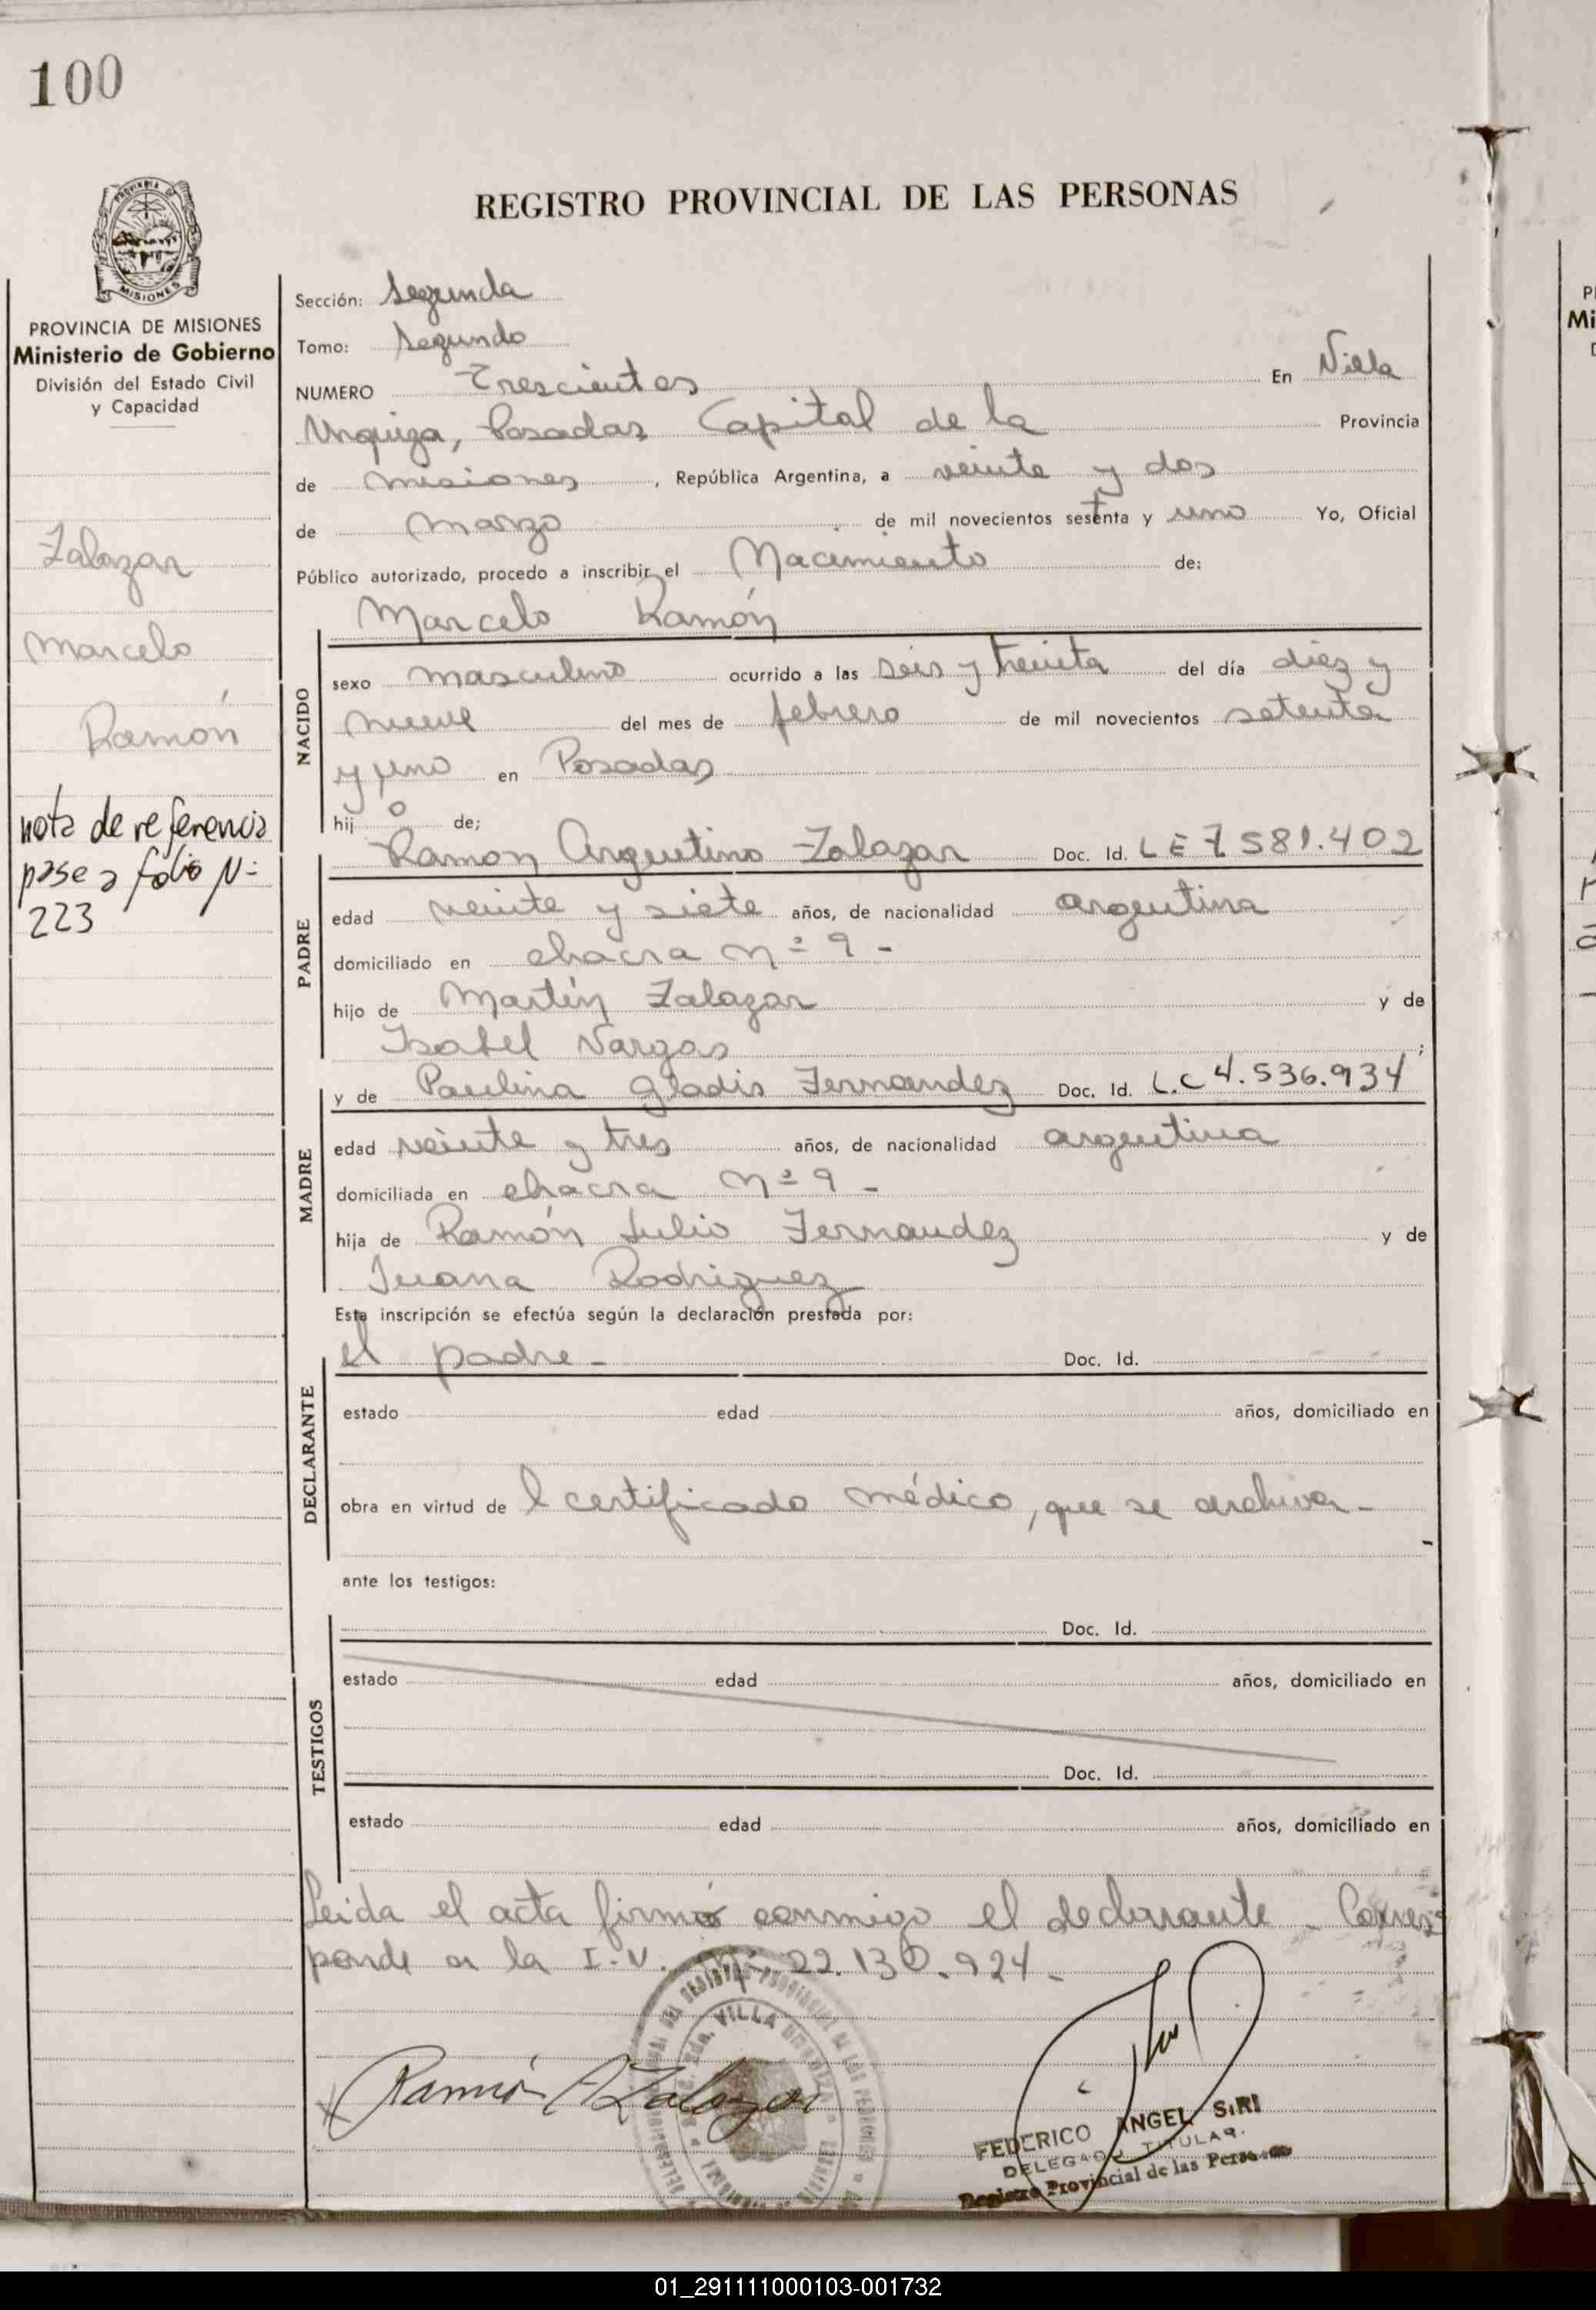 100
REGISTRO PROVINCIAL DE LAS PERSONAS
PROVINCIA DE
MISIONES
PROVINCIA DE MISIONES
Ministerio de Gobierno
División del Estado Civil
y Capacidad
Zalazar
Marcelo
Ramón
nota de referencia
pase a folio Nº
223
Sección: Segunda
Tomo: Segundo
NUMERO Trescientos En Villa
Urquiza, Posadas Capital de la Provincia
de Misiones, República Argentina, a veinte y dos
de Marzo de mil novecientos sesenta y uno Yo, Oficial
Público autorizado, procedo a inscribir el Nacimiento de:
Marcelo Ramón
NACIDO
sexo masculino ocurrido a las seis y treinta del día diez y
nueve del mes de febrero de mil novecientos setenta
y uno en Posadas
hijo de;
Ramon Argentino Zalazar Doc. Id. LE 7.581.402
PADRE
edad veinte y siete años, de nacionalidad argentina
domiciliado en chacra Nº 9 -
hijo de Martín Zalazar y de
Isabel Vargas ;
y de Paulina Gladis Fernandez Doc. Id. L.C 4.536.934
MADRE
edad veinte y tres años, de nacionalidad argentina
domiciliada en chacra Nº 9 -
hija de Ramón Julio Fernandez y de
Juana Rodriguez
Esta inscripción se efectúa según la declaración prestada por:
el padre - Doc. Id.
DECLARANTE
estado edad años, domiciliado en
obra en virtud de l certificado médico, que se archiva -
ante los testigos:
Doc. Id.
TESTIGOS
estado edad años, domiciliado en
Doc. Id.
estado edad años, domiciliado en
Leida el acta firmó conmigo el declarante - Corres
ponde a la I.V. Nº 22.130.924 -
VILLA
Ramón A Zalazar
FEDERICO ANGEL SIRI
DELEGADO TITULAR
Registro Provincial de las Personas
01_291111000103-001732